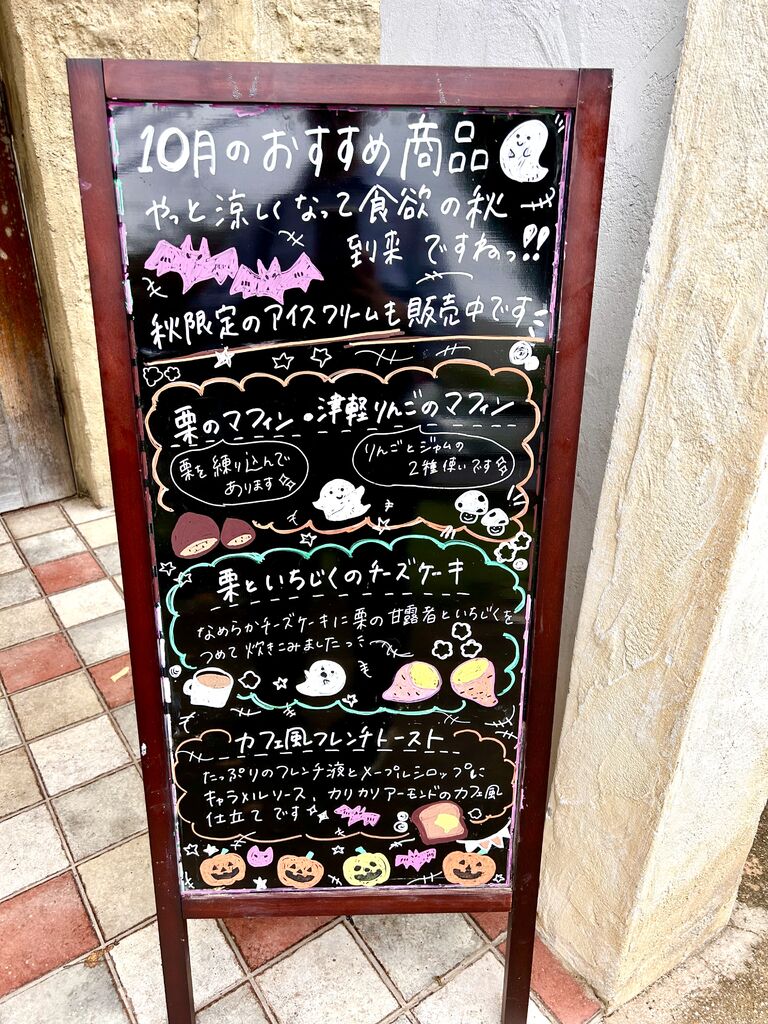 10月のおすすめ商品
やっと涼しくなって食欲の秋
到来ですねっ!!
秋限定のアイスクリームも販売中です
栗のマフィン・津軽りんごのマフィン
栗を練り込んで
あります
りんごとジャムの
2種使いです
栗といちじくのチーズケーキ
なめらかチーズケーキに栗の甘露煮といちじくを
つめて炊きこみましたっ
カフェ風フレンチトースト
たっぷりのフレンチ液とメープルシロップに
キャラメルソース、カリカリアーモンドのカフェ風
仕立てです